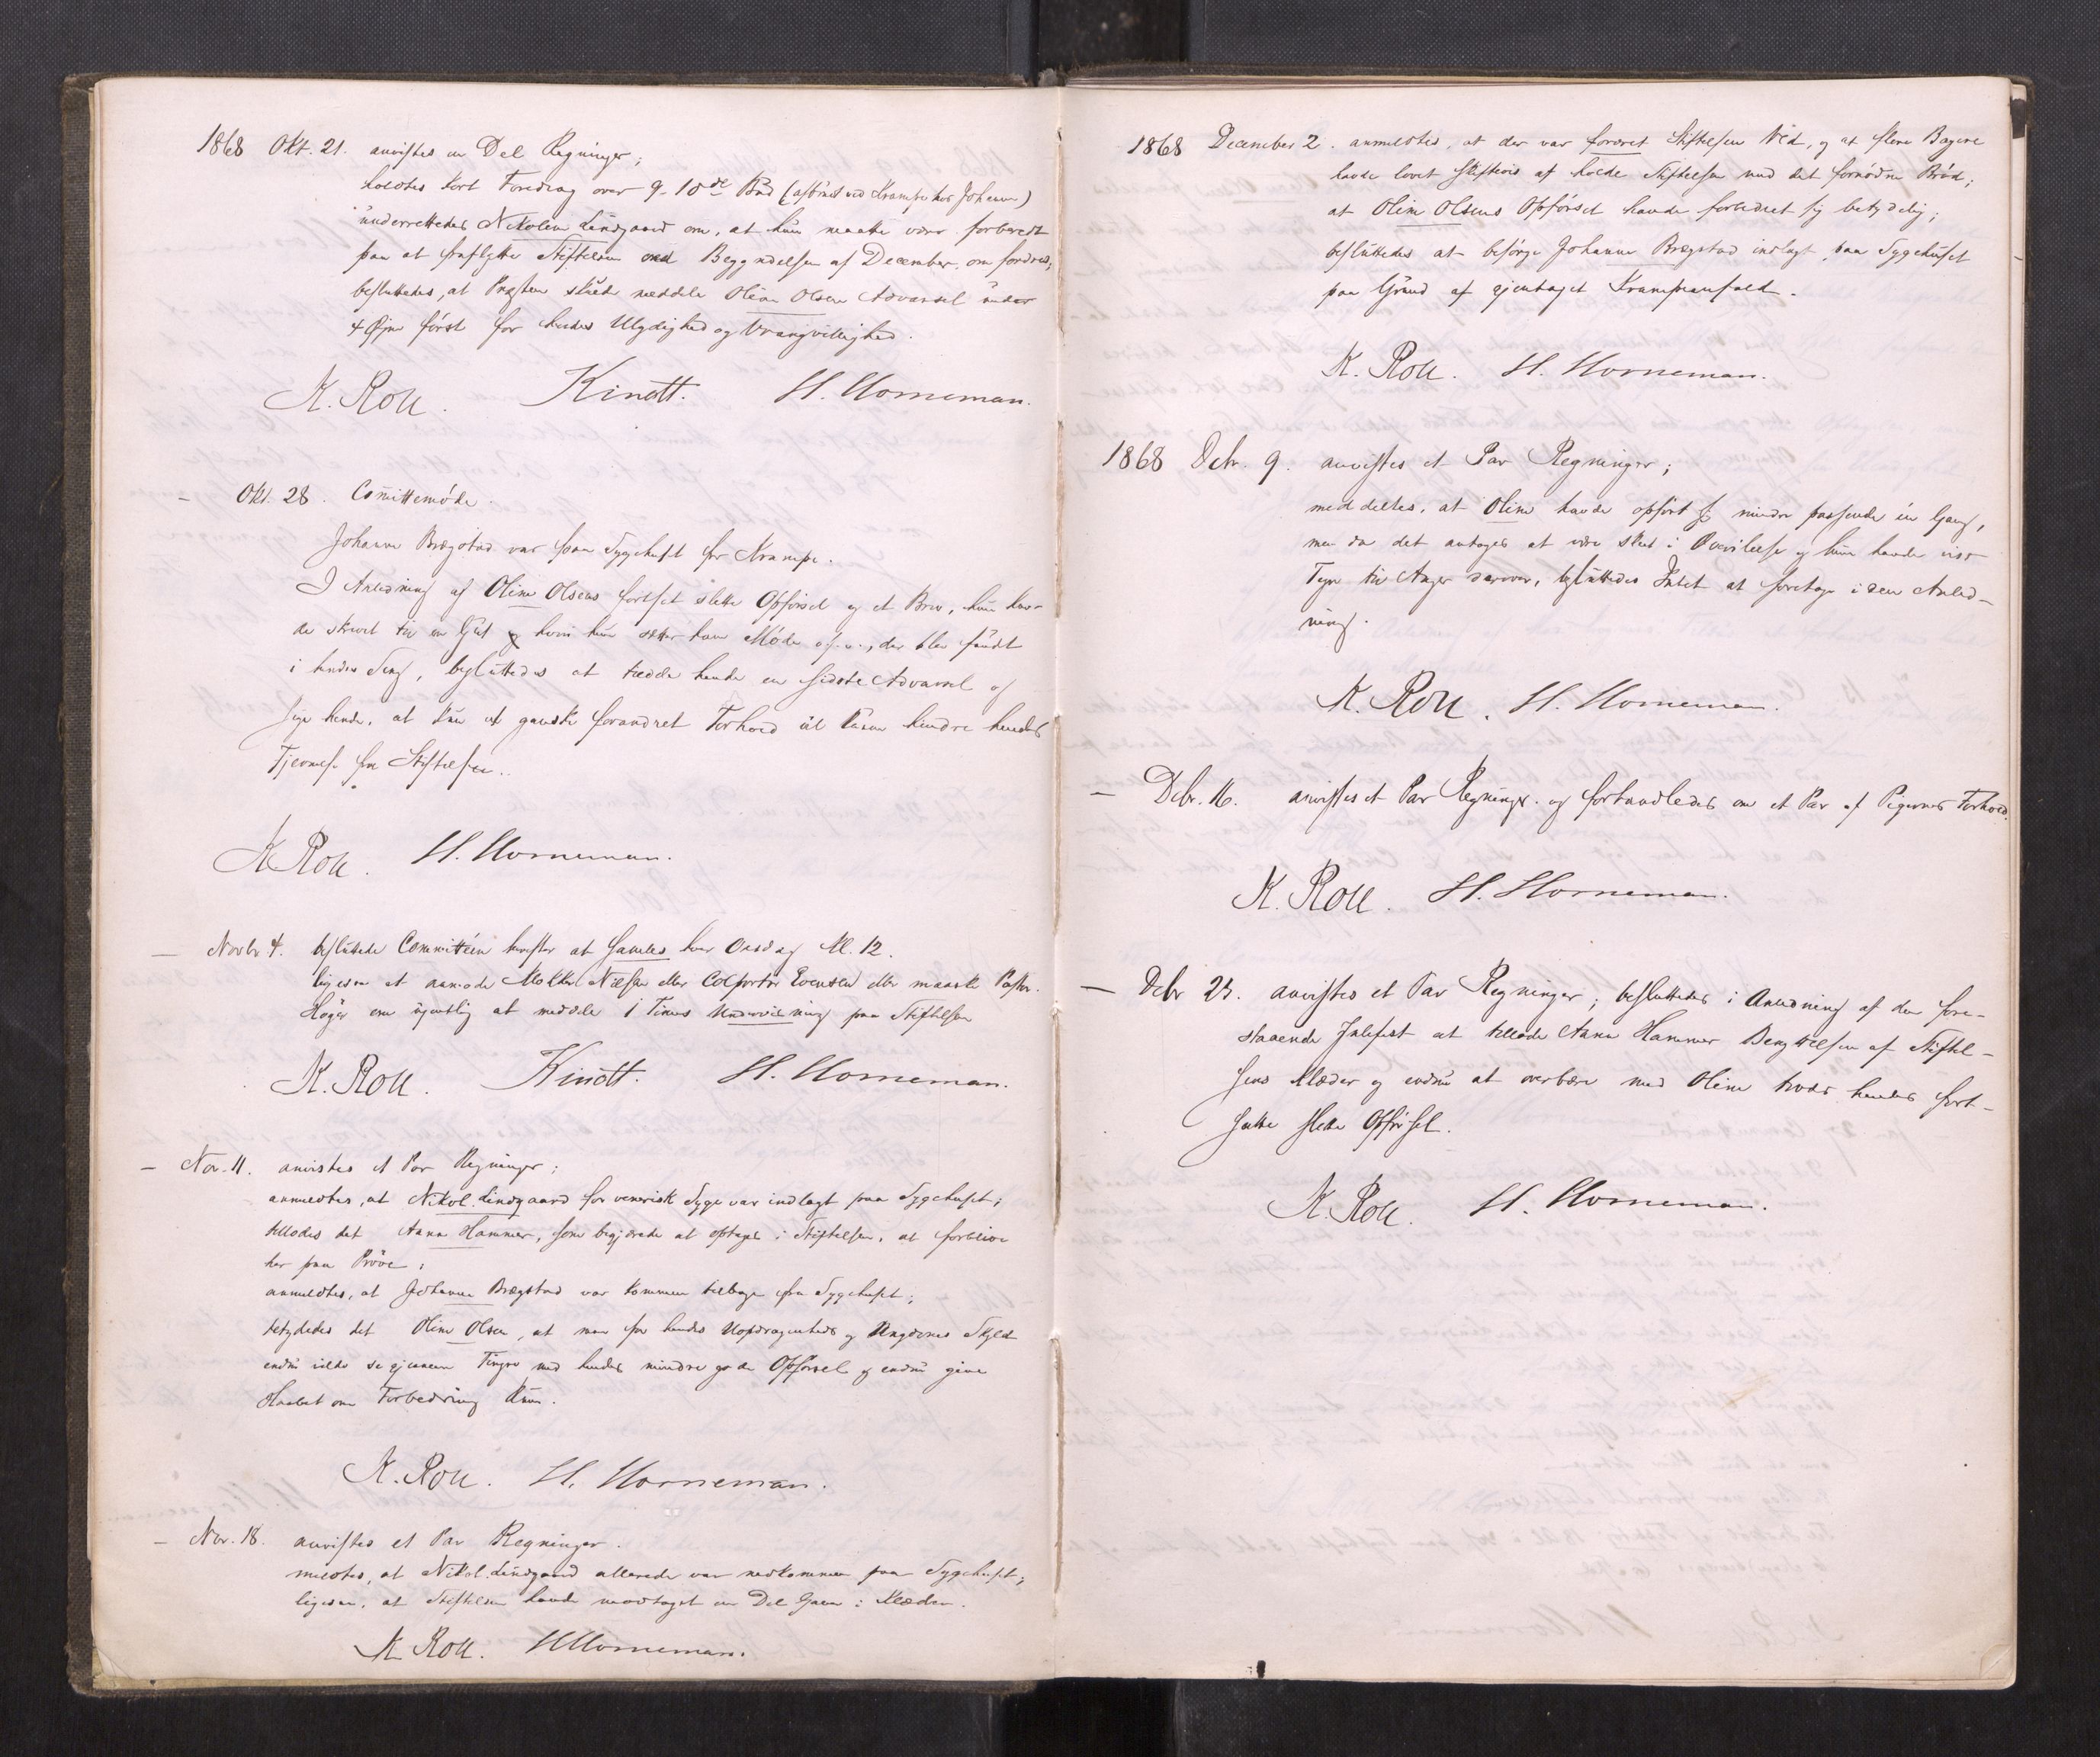 1868 Okt. 21. anvistes en Del Regninger;
holdtes kort Foredrag over 9-10de Bud (afbrudt ved Krampe hos Johanne)
underrettedes Nikoline Lundgaard om, at hun maatte være forberedt
paa at fraflytte Stiftelsen ved Begyndelsen af December, om fordres;
besluttedes, at Præsten skulde meddele Oline Olsen Advarsel under
4 Øjne først for hendes Ulydighed og Vrangvillighed.
K. Roll. Kindt. H. Horneman.
- Okt. 28. Committemöde.
Johanne Brægstad var paa Sygehuset for Krampe.
I Anledning af Oline Olsens fortsat slette Opförsel og et Brev, hun hav-
de skrevet til en Gut hvori hun sætter ham Möde o.s.v., der blev fundt
i hendes Seng, besluttedes at tildele hende en sidste Advarsel og
sige hende, at kun et ganske forandret Forhold vil kunne hindre hendes
Fjernelse fra Stiftelsen.
K. Roll. H. Horneman.
- Novbr. 4. besluttede Committéen herefter at samles hver Onsdag Kl. 12.
ligesom at anmode Mekler Nielsen eller Colportør Evensen eller maaske Pastor
Höyer om ugentlig at meddele 1 Times Underviisning paa Stiftelsen
K. Roll. Kindt. H. Horneman.
- Nov. 11. anvistes et Par Regninger;
anmeldtes, at Nikol. Lundgaard for venerisk Syge var indlagt paa Sygehuset;
tillodes det Anna Hammer, som begjærede at optages i Stiftelsen, at forblive
her paa Pröve;
anmeldtes, at Johanne Brægstad var kommen tilbage fra Sygehuset;
betydedes det Oline Olsen, at man for hendes Uopdragenheds og Ungdoms Skyld
endnu vilde se gjennem Fingre med hendes mindre gode Opförsel og endnu give
Haabet om Forbedring Rum.
K. Roll. H. Horneman.
- Nov. 18. anvistes et Par Regninger.
meldtes, at Nikol. Lundgaard allerede var nedkommen paa Sygehuset;
ligesom, at Stiftelsen havde modtaget en Del Gaver i Klæder.
K Roll. H Horneman.
1868 December 2. anmeldtes, at der var foræret Stiftelsen Ved, og at flere Bagere
havde lovet skiftevis at holde Stiftelsen med det fornödne Bröd;
at Oline Olsens Opförsel havde forbedret sig betydelig;
besluttedes at besörge Johanne Brægstad indlagt paa Sygehuset
paa Grund af gjentaget Krampeanfald.
K. Roll. H. Horneman.
1868 Debr. 9. anvistes et Par Regninger;
meddeltes, at Oline havde opfört sig mindre passende én Gang,
men da det antoges at være skeet i Overilelse og hun havde vist
Tegn til Anger derover, besluttedes Intet at foretage i den Anled-
ning.
K. Roll. H. Horneman.
- Debr. 16. anvistes et Par Regninger og forhandledes om et Par af Pigernes Forhold.
K. Roll. H. Horneman.
- Debr 23. anvistes et Par Regninger; besluttedes i Anledning af den fore-
staaende Julefest at tillade Anna Hammer Benyttelsen af Stiftel-
sens Klæder og endnu at overbære med Oline trods hendes fort-
satte slette Opförsel.
K. Roll. H. Horneman.